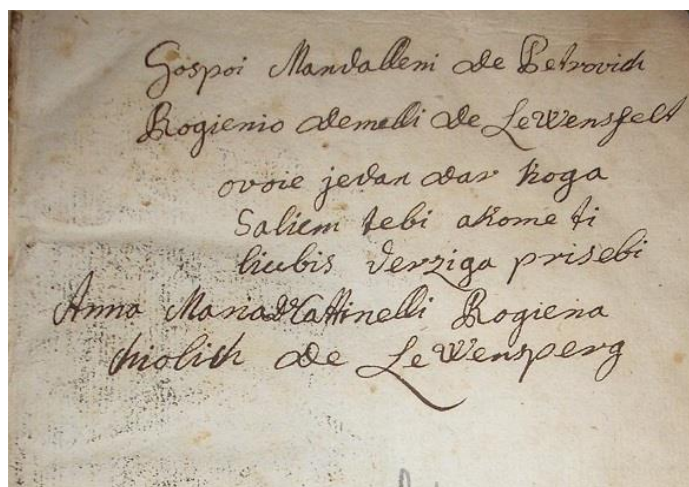 Gospoi Mandalleni de Petrovich
Rogienio demelli de LeWensfelt
ovoie jedan dar koga
Saliem tebi akome ti
liubis derziga prisebi
Anna Maria Mattinelli Rogiena
chiolich de LeWensperg